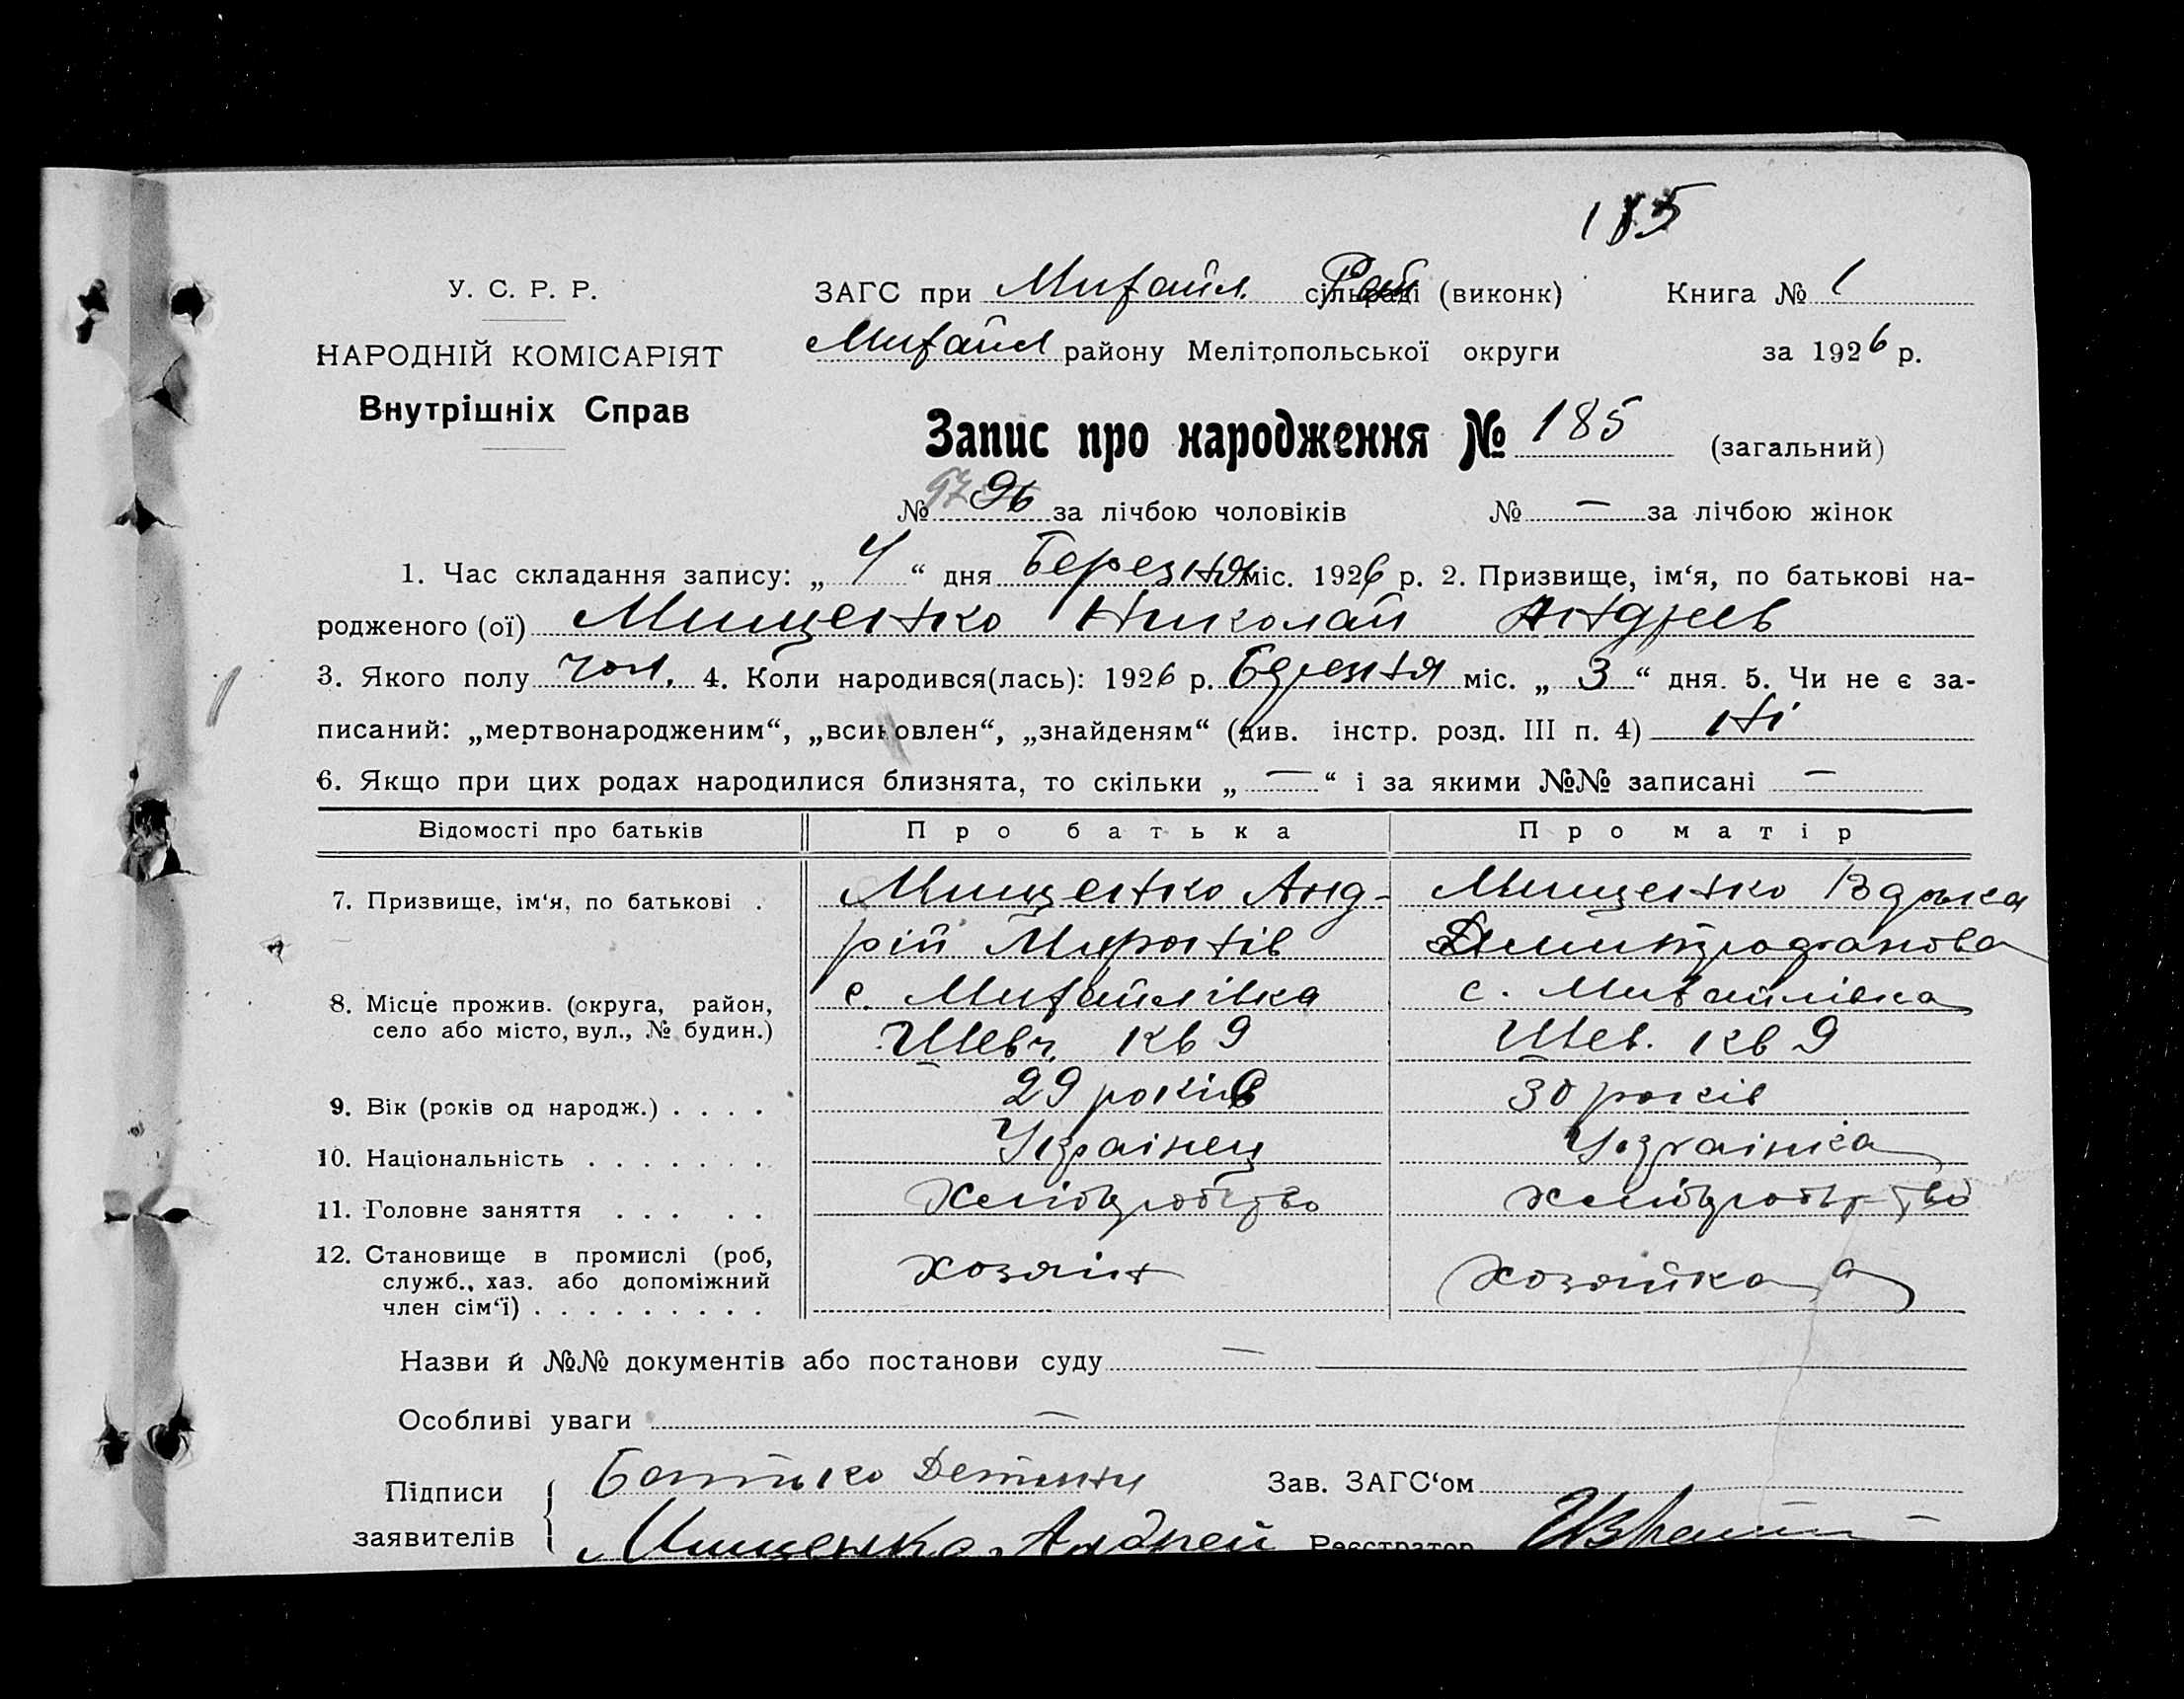 185
У. С. Р. Р.
НАРОДНІЙ КОМІСАРІЯТ
Внутрішніх Справ
ЗАГС при Михайл. сільраді Рай (виконк) Книга № 1
Михайл району Мелітопольської округи за 1926 р.
Запис про народження № 185 (загальний)
№ 97 96 за лічбою чоловіків № — за лічбою жінок
1. Час складання запису: „ 4 “ дня Березня міс. 1926 р. 2. Призвище, ім‘я, по батькові на-
родженого (ої) Мищенко Николай Андреев
3. Якого полу чол. 4. Коли народився(лась): 1926 р. Березня міс. „ 3 “ дня. 5. Чи не є за-
писаний: „мертвонародженим“, „всиновлен“, „знайденям“ (див. інстр. розд. III п. 4) Ні
6. Якщо при цих родах народилися близнята, то скільки „ — “ і за якими №№ записані —
Відомості про батьків Про батька Про матір
7. Призвище, ім‘я, по батькові . Мищенко Анд- Мищенко
рій Миронів
8. Місце прожив. (округа, район, с. Михайлівка с. Михайлівка
село або місто, вул., № будин.) Шевч. кв 9 Шев. кв 9
9. Вік (років од народж.) . . . . 29 років 30 років
10. Національність . . . . . . . Украінец Украінка
11. Головне заняття . . . . . Хліборобство хліборобство
12. Становище в промислі (роб, хозяін хозяйка
служб., хаз. або допоміжний
член сім‘ї) . . . . . . . . .
Назви й №№ документів або постанови суду —
Особливі уваги —
Підписи Батько Зав. ЗАГС‘ом
заявителів Мищенко Андрей Реєстратор